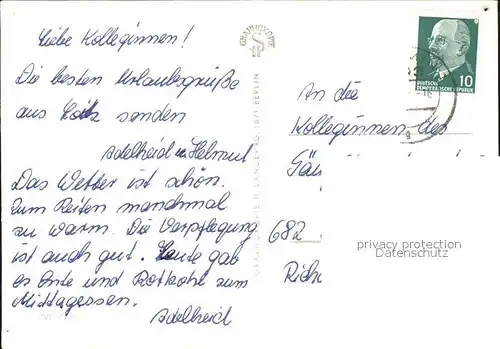 Liebe Kolleginnen!
Die besten Urlaubsgrüße
aus senden
Adelheid u. Helmut
Das Wetter ist schön.
Zum Reiten manchmal
zu warm. Die Verpflegung
ist auch gut. Heute gab
es Ente und Rotkohl zum
Mittagessen.
Adelheid
GRAPHOKOPIE
BERLIN
DEUTSCHE
DEMOKRATISCHE REPUBLIK
10
An die
Kolleginnen des
682
privacy protection
Datenschutz